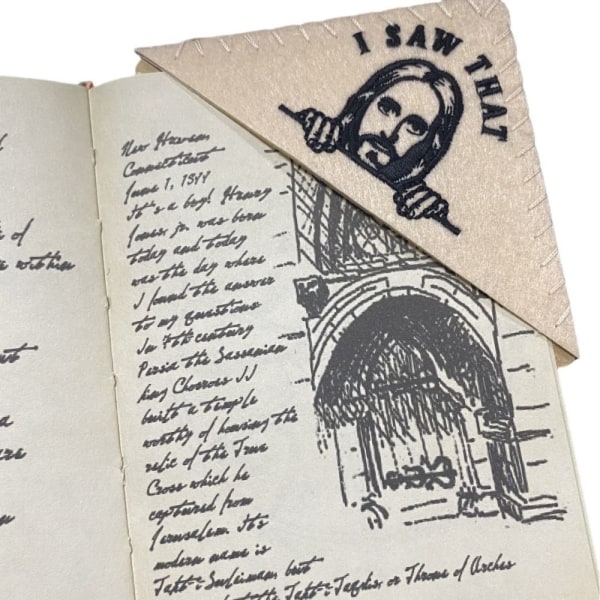 I SAW THAT
of
within
New Haven,
Connecticut
June 1, 1899
It's a boy! Henry
Jones, jr. was born
today and today
was the day where
I found the answer
to my questions
In 7th century
Persia the Sassanian
king Chosroes II
built a temple
worthy of housing the
relic of the True
Cross which he
captured from
Jerusalem. It's
modern name is
Takt-i-Suleiman, but
Takt-i-Taqdis, or Throne of Arches